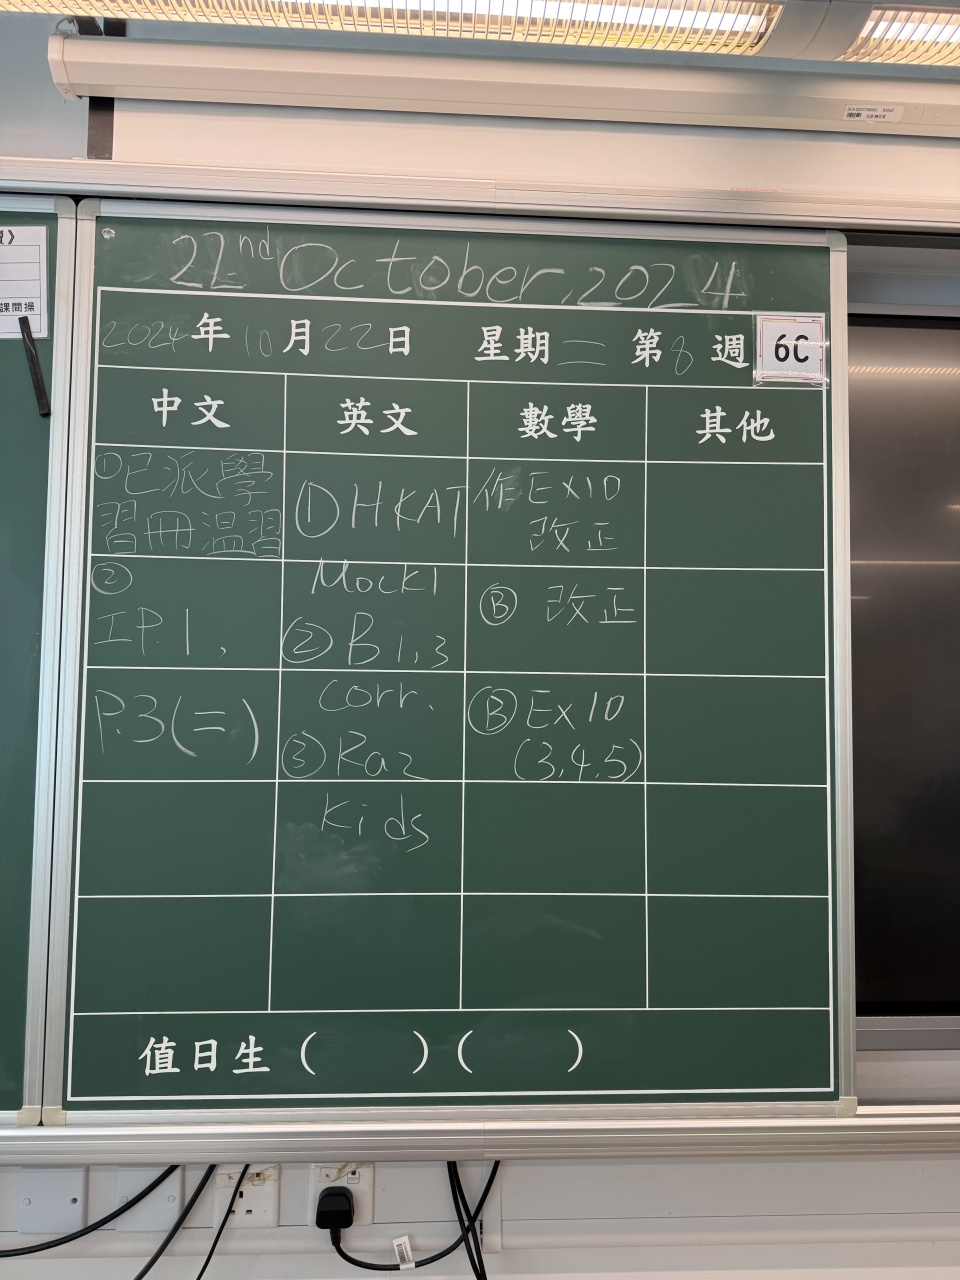 課間操
22nd October, 2024
2024年10月22日 星期二 第8週 6C
中文 英文 數學 其他
①已派學
習冊溫習
②
工P.1,
P.3(二)
①HKAT
Mock1
②B1,3
corr.
③Raz
Kids
作Ex10
改正
Ⓑ 改正
Ⓑ Ex10
(3,4,5)
值日生 ( ) ( )